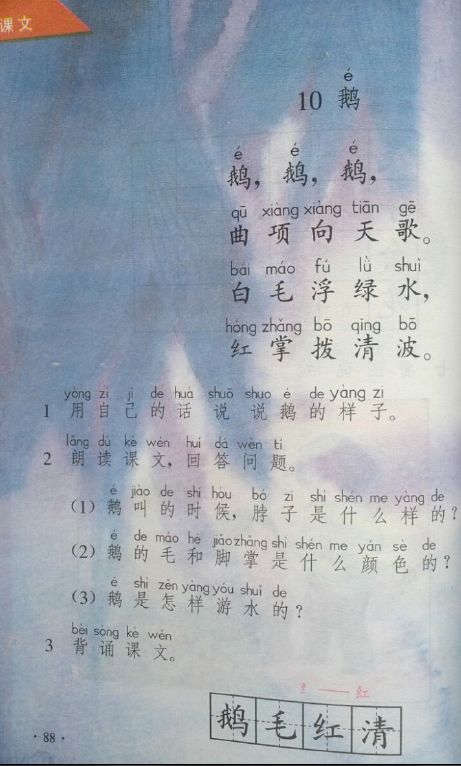 课文
é
10 鹅
é é é
鹅，鹅，鹅，
qū xiàng xiàng tiān gē
曲项向天歌。
bái máo fú lǜ shuǐ
白毛浮绿水，
hóng zhǎng bō qīng bō
红掌拨清波。
yòng zì jǐ de huà shuō shuo é de yàng zi
1 用自己的话说说鹅的样子。
lǎng dú kè wén huí dá wèn tí
2 朗读课文，回答问题。
é jiào de shí hòu bó zi shì shén me yàng de
（1）鹅叫的时候，脖子是什么样的？
é de máo hé jiǎo zhǎng shì shén me yán sè de
（2）鹅的毛和脚掌是什么颜色的？
é shì zěn yàng yóu shuǐ de
（3）鹅是怎样游水的？
bèi sòng kè wén
3 背诵课文。
纟——红
鹅毛红清
·88·